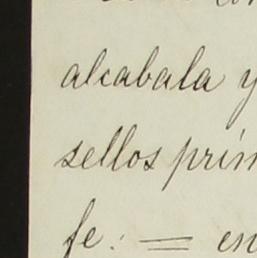 alcabala y
sellos prim
fe: = en